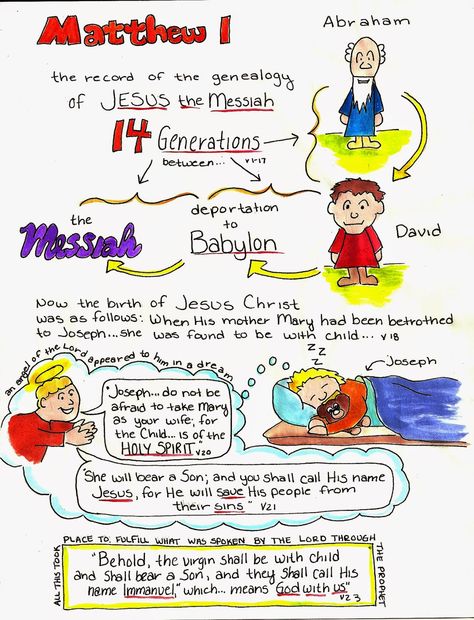 Matthew 1
Abraham
the record of the genealogy
of JESUS the Messiah
14 Generations
between... v1-17
the
Messiah
deportation
to
Babylon
David
Now the birth of Jesus Christ
was as follows: When His mother Mary had been betrothed
to Joseph...she was found to be with child... v18
an angel of the Lord appeared to him in a dream
z z z
Joseph
"Joseph... do not be
afraid to take Mary
as your wife; for
the Child... is of the
HOLY SPIRIT v20
"She will bear a Son; and you shall call His name
Jesus, for He will save His people from
their sins" v21
ALL THIS TOOK
PLACE TO FULFILL WHAT WAS SPOKEN BY THE LORD THROUGH
THE PROPHET
"Behold, the virgin shall be with child
and shall bear a Son, and they shall call His
name Immanuel," which... means God with us"
v23